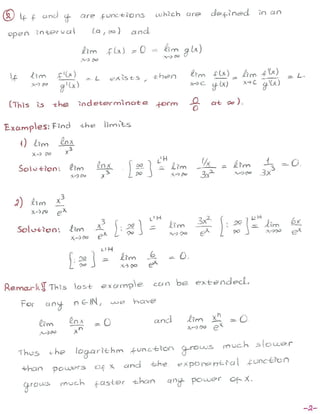 ⊛ If f and g are functions which are defined in an
open interval (a, ∞) and
lim x→∞ f(x) = 0 = lim x→∞ g(x)
If lim x→∞ f'(x)/g'(x) = L exists, then lim x→c f(x)/g(x) = lim x→c f'(x)/g'(x) = L.
(This is the indeterminate form 0/0 at ∞).
Examples: Find the limits.
1) lim x→∞ lnx/x³
Solution: lim x→∞ lnx/x³ [: ∞/∞] L'H = lim x→∞ (1/x)/3x² = lim x→∞ 1/3x³ = 0.
2) lim x→∞ x³/eˣ
Solution: lim x→∞ x³/eˣ [: ∞/∞] L'H = lim x→∞ 3x²/eˣ [: ∞/∞] L'H = lim x→∞ 6x/eˣ
[: ∞/∞] L'H = lim x→∞ 6/eˣ = 0.
Remark: This last example can be extended.
For any n∈IN, we have
lim x→∞ lnx/xⁿ = 0 and lim x→∞ xⁿ/eˣ = 0.
Thus the logarithm function grows much slower
than powers of x and the exponential function
grows much faster than any power of x.
-2-